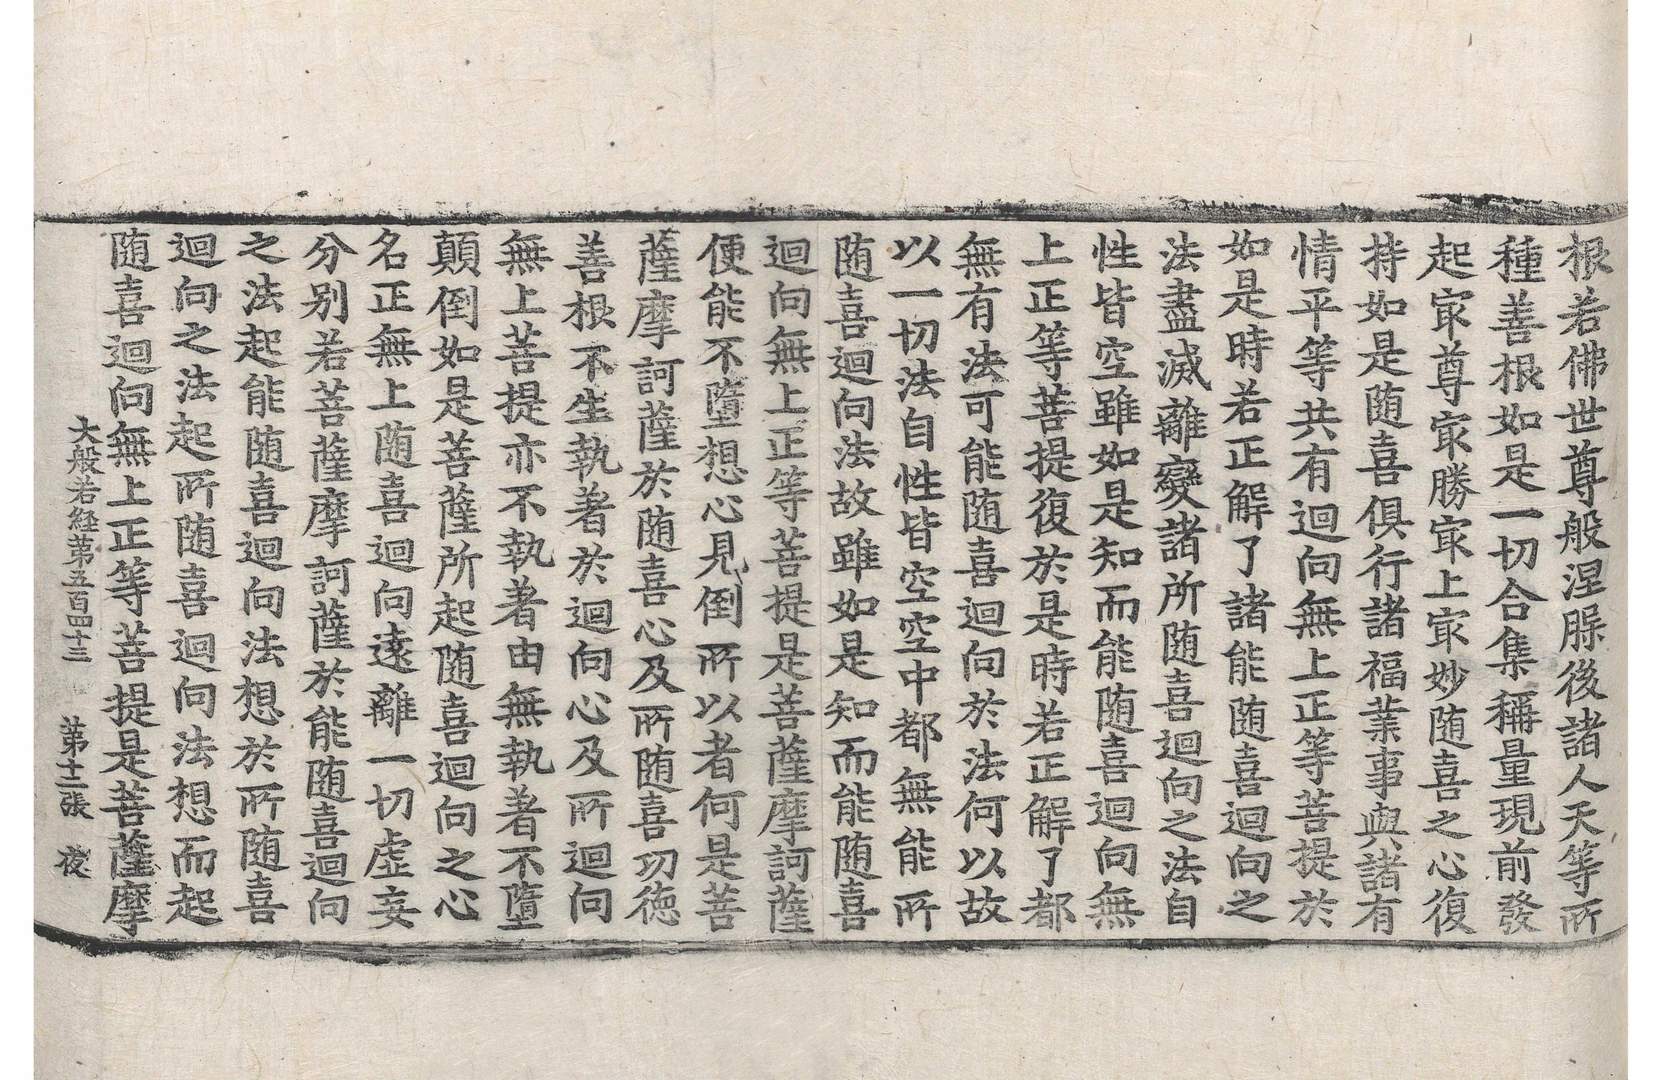 根若佛世尊般涅脲後諸人天等所
種善根如是一切合集稱量現前發
起㝡尊㝡勝㝡上㝡妙随喜之心復
持如是随喜俱行諸福業事與諸有
情平等共有迴向無上正等菩提於
如是時若正解了諸能随喜迴向之
法盡滅離變諸所随喜迴向之法自
性皆空雖如是知而能随喜迴向無
上正等菩提復於是時若正解了都
無有法可能随喜迴向於法何以故
以一切法自性皆空空中都無能所
随喜迴向法故雖如是知而能随喜
迴向無上正等菩提是菩薩摩訶薩
便能不墮想心見倒所以者何是菩
薩摩訶薩於随喜心及所随喜功德
善根不生執著於迴向心及所迴向
無上菩提亦不執著由無執著不墮
顛倒如是菩薩所起随喜迴向之心
名正無上随喜迴向遠離一切虛妄
分别若菩薩摩訶薩於能随喜迴向
之法起能随喜迴向法想於所随喜
迴向之法起所随喜迴向法想而起
随喜迴向無上正等菩提是菩薩摩
大般若経第五百四十三 第十二張 夜